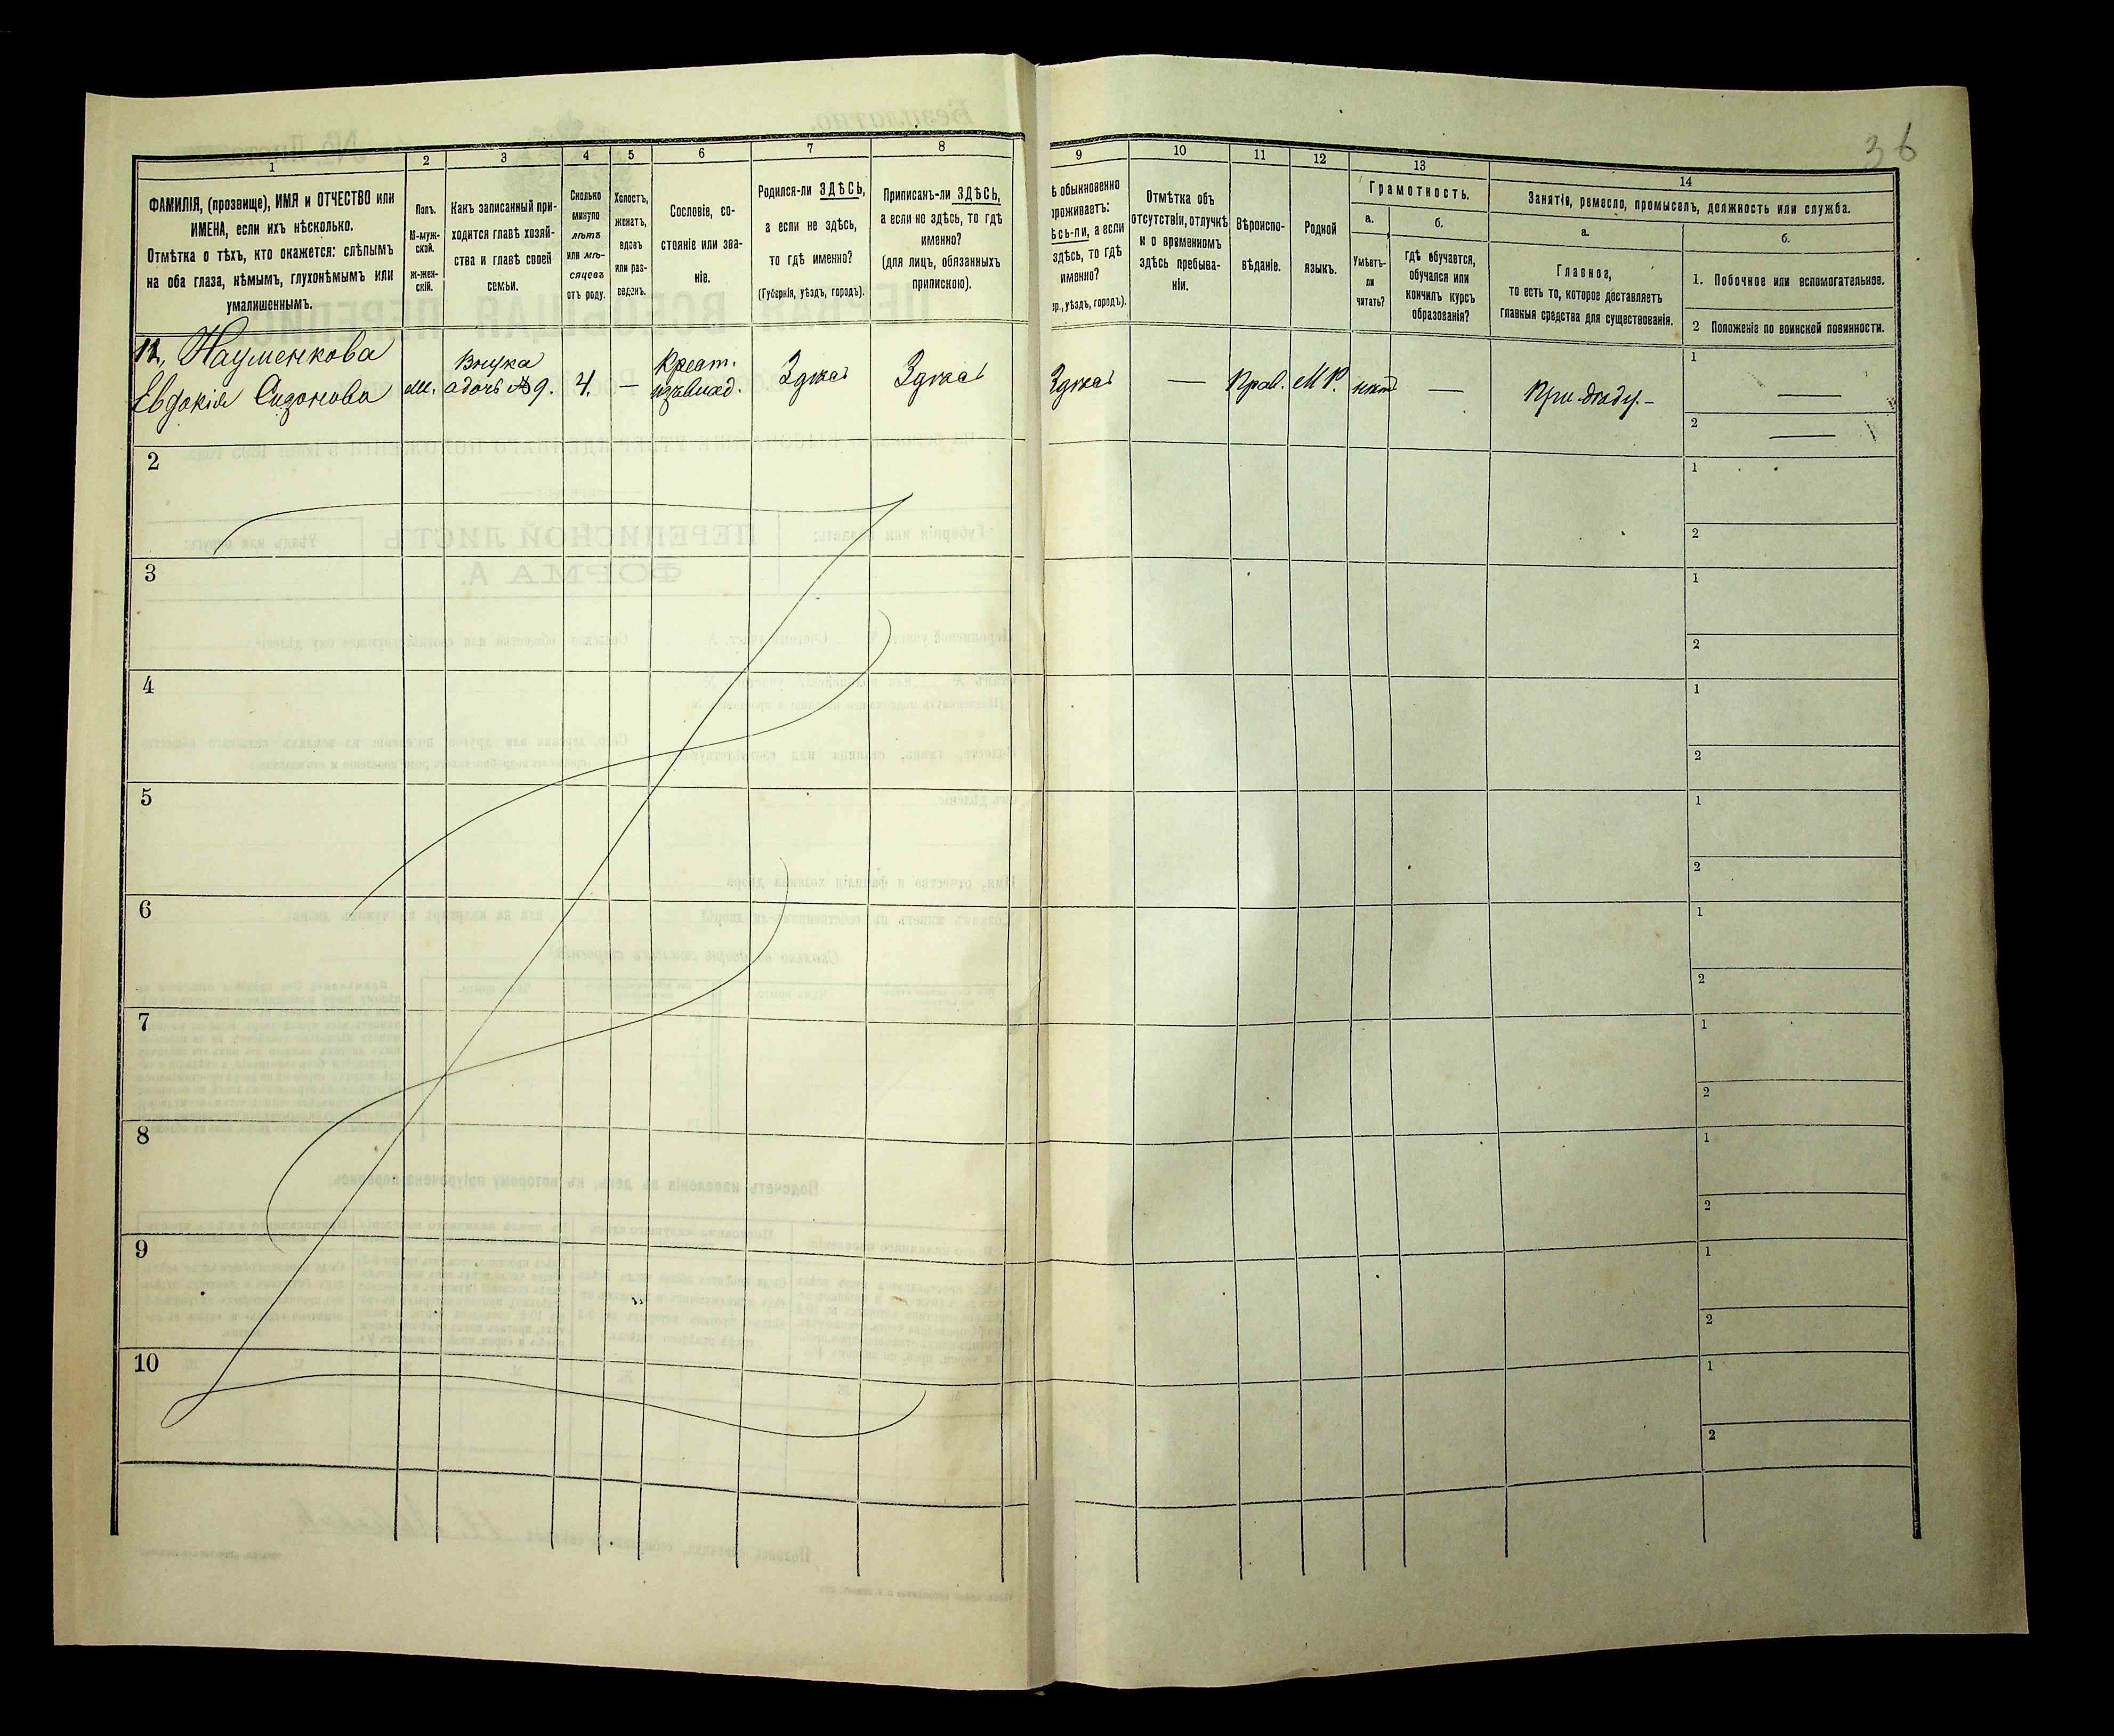 36
1
2
3
4
5
6
7
8
9
10
11
12
13
14
ФАМИЛІЯ, (прозвище), ИМЯ и ОТЧЕСТВО или
ИМЕНА, если ихъ нѣсколько.
Отмѣтка о тѣхъ, кто окажется: слѣпымъ
на оба глаза, нѣмымъ, глухонѣмымъ или
умалишеннымъ.
Полъ.
М-муж-
ской.
Ж-жен-
скій.
Какъ записанный при-
ходится главѣ хозяй-
ства и главѣ своей
семьи.
Сколько
минуло
лѣтъ
или мѣ-
сяцевъ
отъ роду.
Холостъ,
женатъ,
вдовъ
или раз-
веденъ.
Сословіе, со-
стояніе или зва-
ніе.
Родился-ли ЗДѢСЬ,
а если не здѣсь,
то гдѣ именно?
(Губернія, уѣздъ, городъ).
Приписанъ-ли ЗДѢСЬ,
а если не здѣсь, то гдѣ
именно?
(для лицъ, обязанныхъ
припискою).
ѣ обыкновенно
проживаетъ:
ѣсь-ли, а если
здѣсь, то гдѣ
именно?
ер., уѣздъ, городъ).
Отмѣтка объ
отсутствіи, отлучкѣ
и о временномъ
здѣсь пребыва-
ніи.
Вѣроиспо-
вѣданіе.
Родной
языкъ.
Грамотность.
а.
б.
Умѣетъ-
ли
читать?
гдѣ обучается,
обучался или
кончилъ курсъ
образованія?
Занятіе, ремесло, промыселъ, должность или служба.
а.
б.
Главное,
то есть то, которое доставляетъ
главныя средства для существованія.
1. Побочное или вспомогательное.
2 Положеніе по воинской повинности.
11, Науменкова
Евдокія Сидонова
Внучка
а дочь № 9.
4.
—
Крест.
Здѣсь
Здѣсь
Здѣсь
—
Прав.
М Р.
нѣтъ
—
При дѣду.-
1
—
2
—
2
1
2
3
1
2
4
1
2
5
1
2
6
1
2
7
1
2
8
1
2
9
1
2
10
1
2